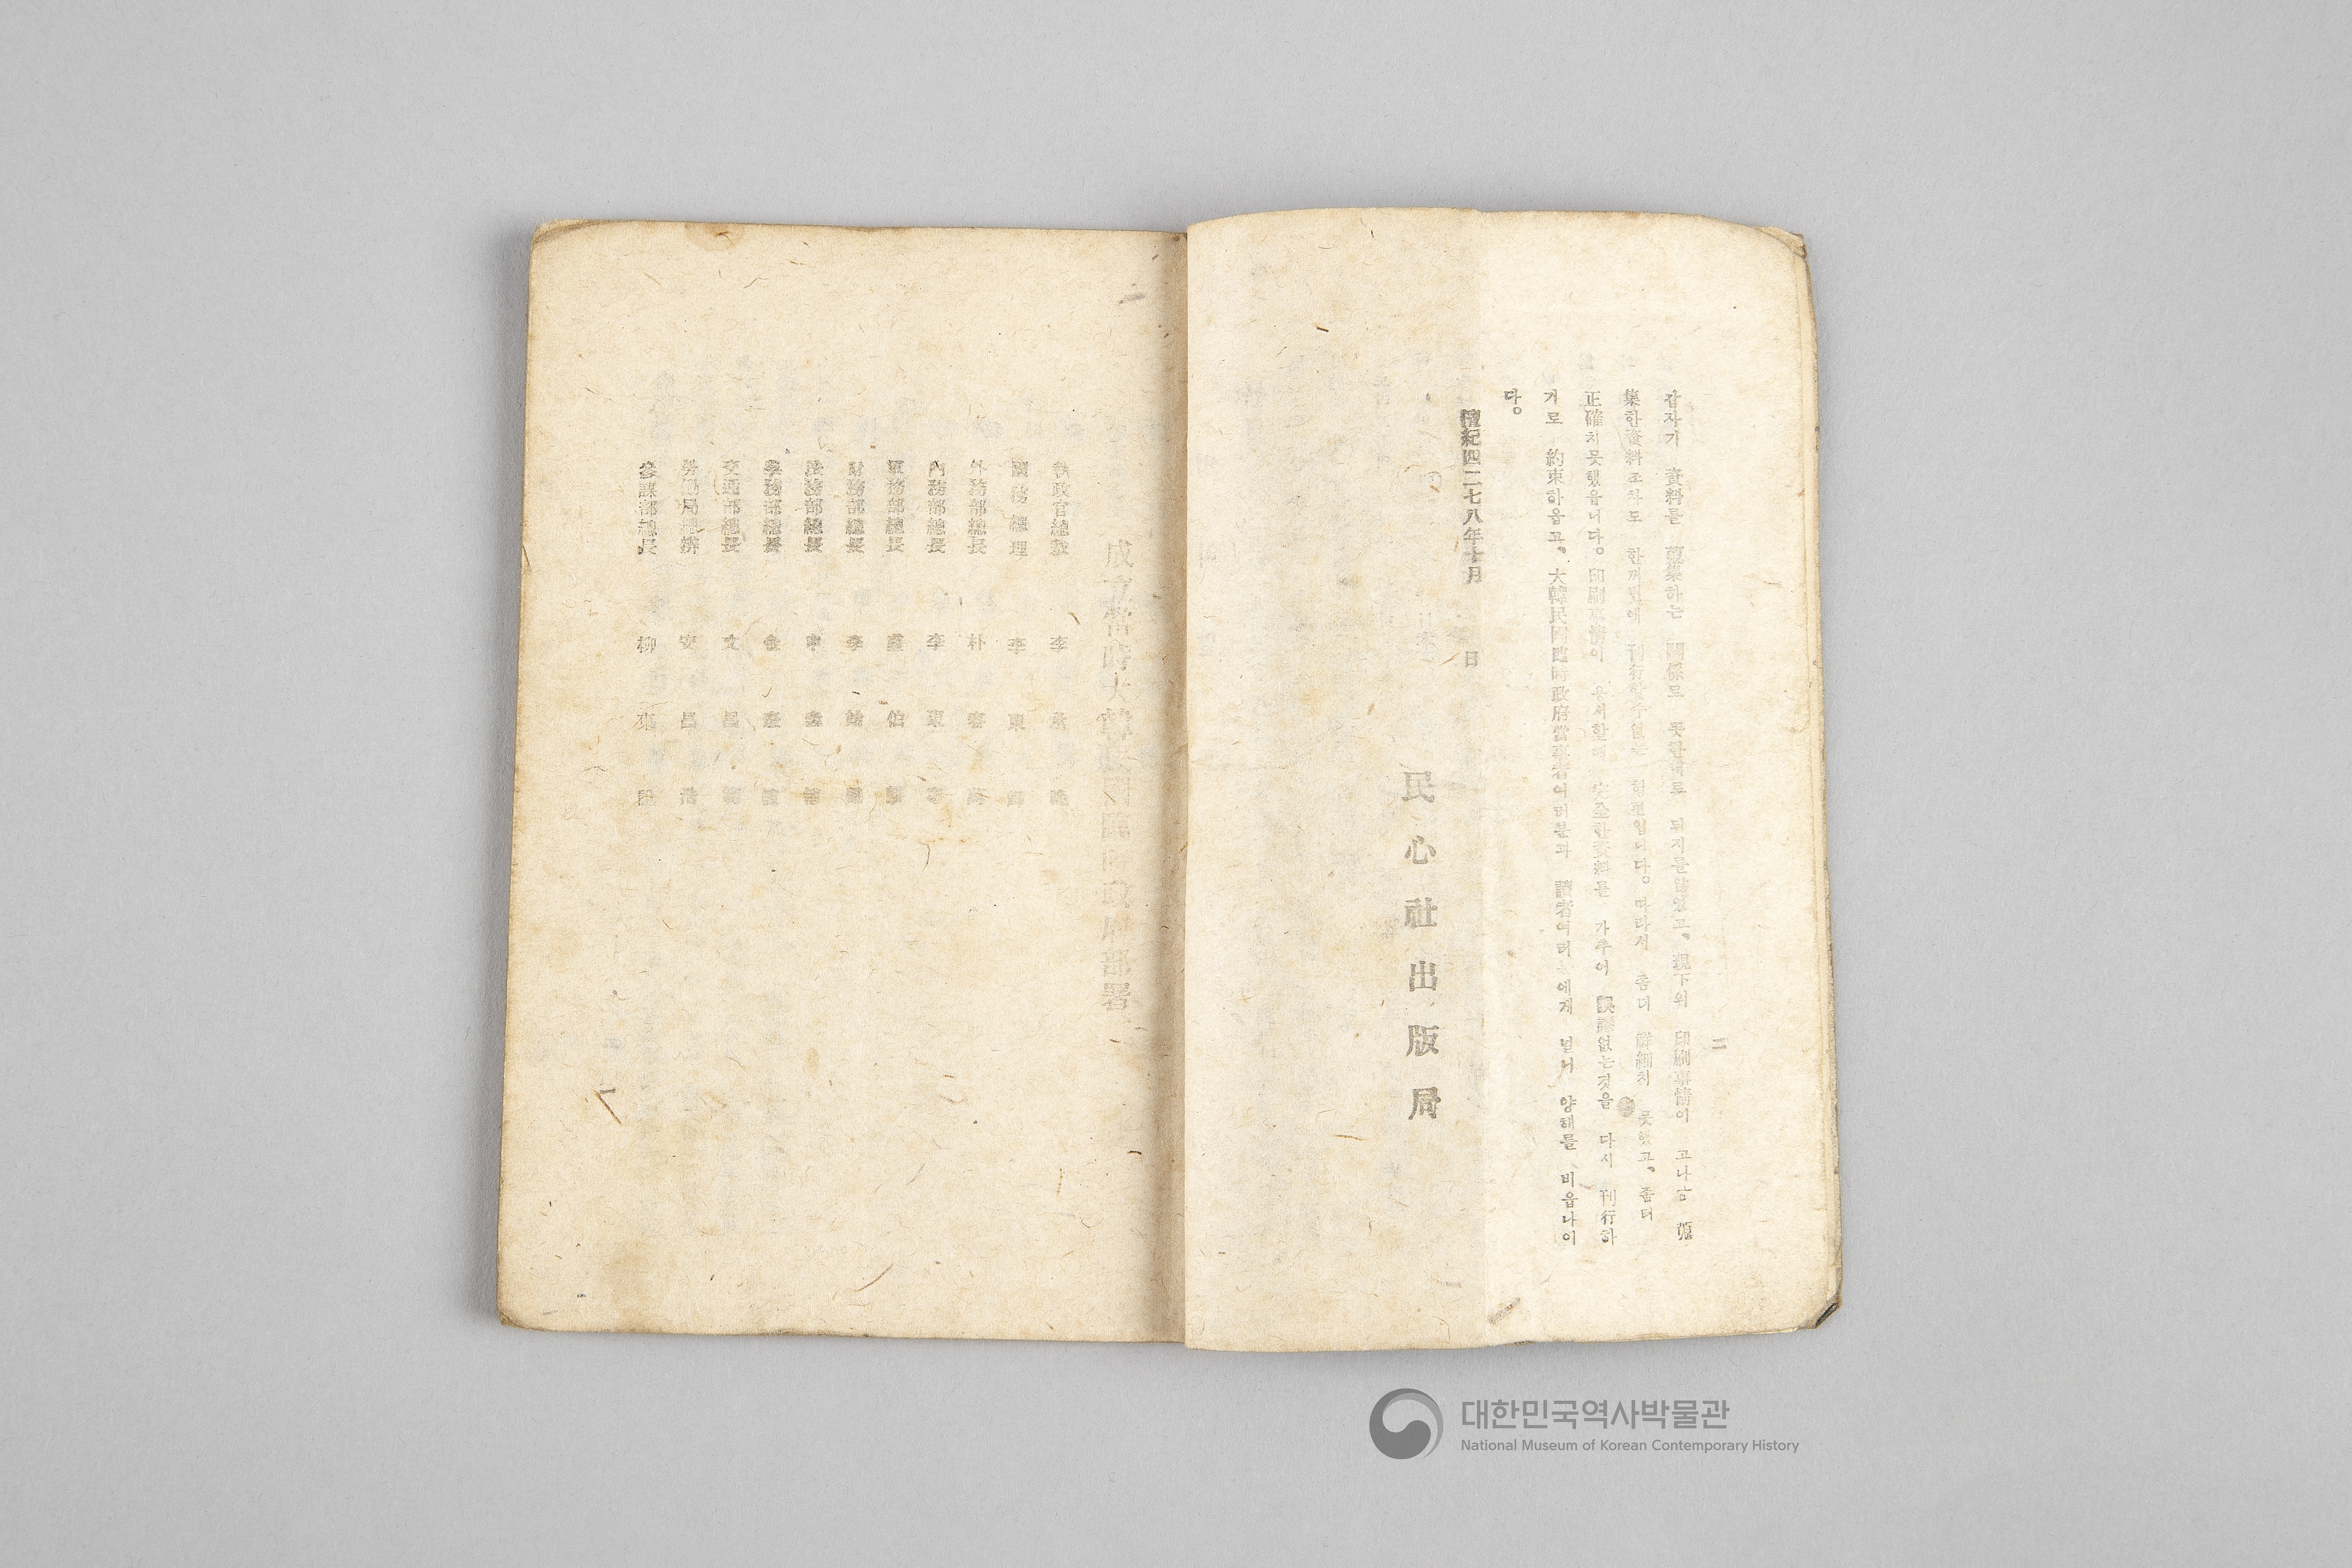 二
갑자기 資料를 蒐集하는 關係로 뜻한대로 되지를않었고、現下의 印刷事情이 고나흔 蒐
集한資料조차도 한꺼번에 刊行할수없는 형편입니다。따라서 좀더 詳細치 못했고、좀더
正確치못했읍니다。印刷事情이 용서할때 完全한資料를 가추어 誤謬없는것을 다시 刊行하
기로 約束하옵고、大韓民國臨時政府當事者여러분과 讀者여러 에게 널니 양해를 비옵나이
다。
檀紀四二七八年十月 日
民心社出版局
成立當時大韓民國臨時政府部署
執政官總裁 李承晩
國務總理 李東
外務部總長 朴容萬
內務部總長 李東寧
軍務部總長 盧伯麟
財務部總長 李始榮
法務部總長 申
學務部總長 金奎植
交通部總長 文昌範
勞働局總辦 安昌浩
參謀部總長 柳東說
대한민국역사박물관
National Museum of Korean Contemporary History